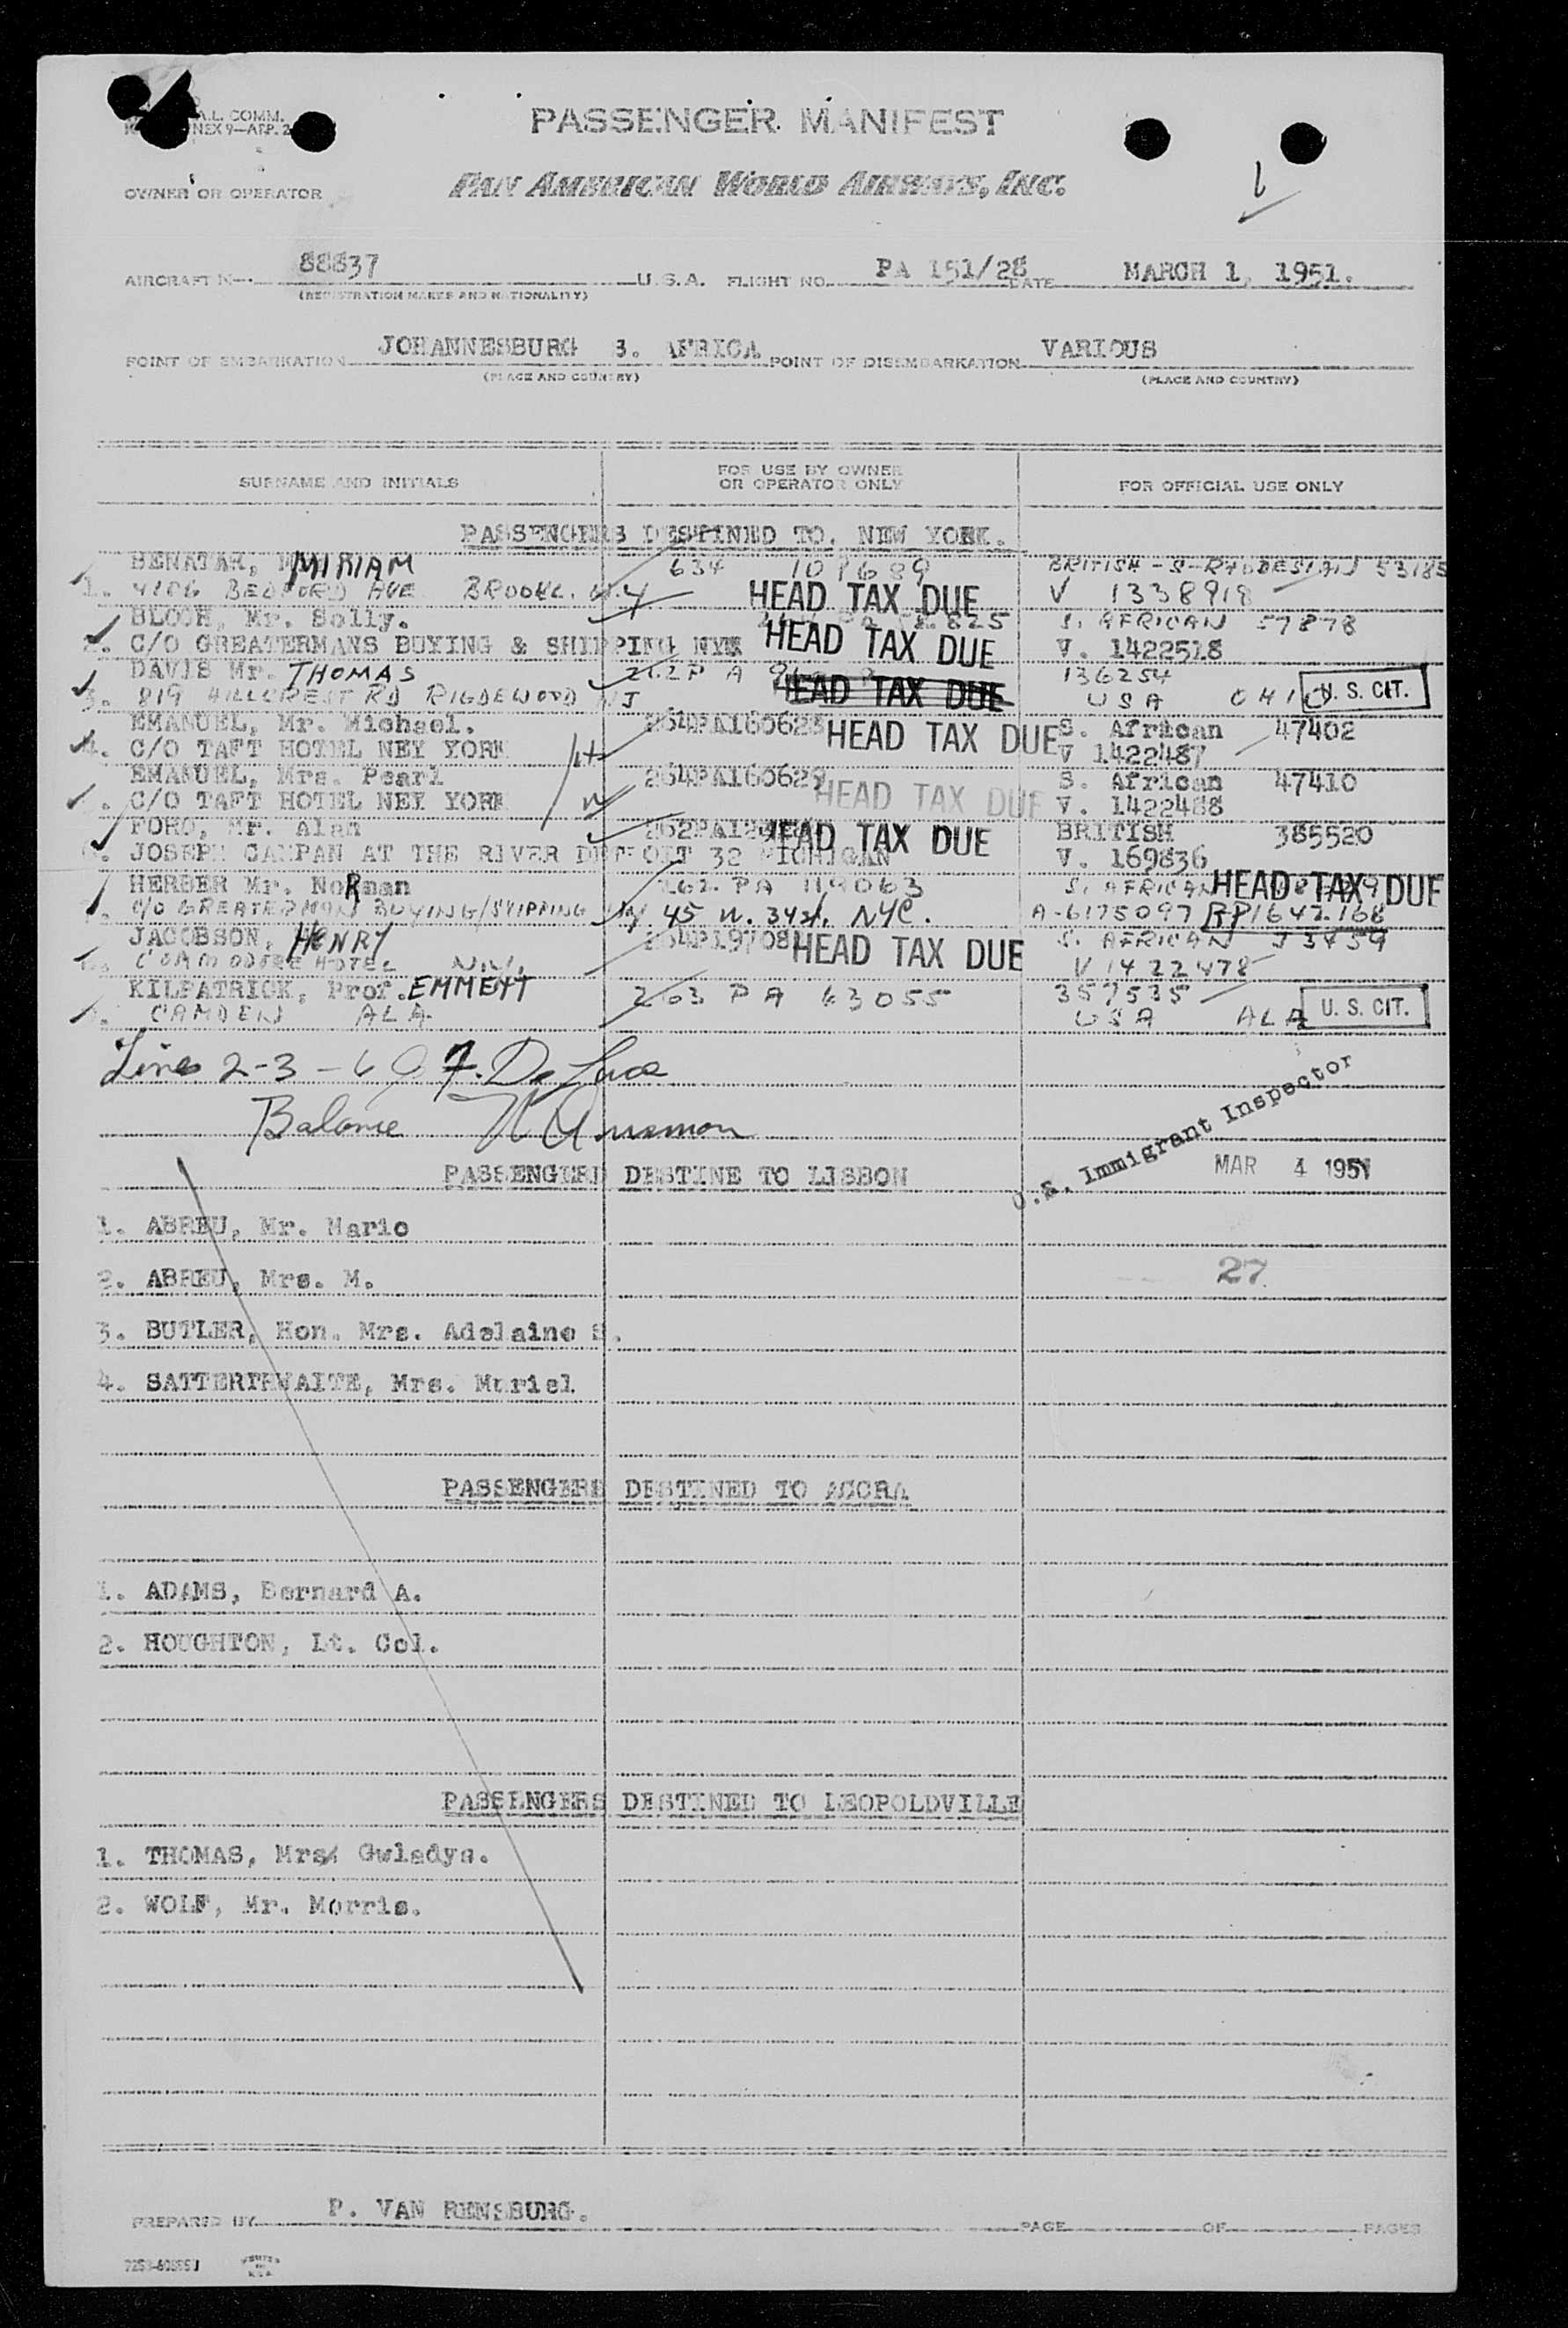 A.L. COMM.
ANNEX 9—APP. 2
PASSENGER MANIFEST
OWNER OR OPERATOR PAN AMERICAN WORLD AIRWAYS, INC.
AIRCRAFT N 88837 U.S.A. FLIGHT NO. PA 151/28 DATE MARCH 1, 1951.
(REGISTRATION MARKS AND NATIONALITY)
POINT OF EMBARKATION JOHANNESBURG S. AFRICA POINT OF DISEMBARKATION VARIOUS
(PLACE AND COUNTRY) (PLACE AND COUNTRY)
SURNAME AND INITIALS FOR USE BY OWNER OR OPERATOR ONLY FOR OFFICIAL USE ONLY
PASSENGERS DESTINED TO. NEW YORK.
BENATAR, MIRIAM 634 101689 BRITISH-S-RHODESIAN 53185
1. 4106 BEDFORD AVE BROOKL. N.Y HEAD TAX DUE V 1338918
BLOCH, Mr. Solly. S. AFRICAN 57878
2. C/O GREATERMANS BUYING & SHIPPING NYK HEAD TAX DUE V. 1422518
DAVIS Mr. THOMAS 262 P A 136254
3. 819 HILLCREST RD RIGDEWOOD NJ HEAD TAX DUE USA OHIO U. S. CIT.
EMANUEL, Mr. Michael. 264PA160623 HEAD TAX DUE S. African 47402
4. C/O TAFT HOTEL NEY YORK V 1422487
EMANUEL, Mrs. Pearl 264PA160629 S. African 47410
C/O TAFT HOTEL NEY YORK HEAD TAX DUE V. 1422488
FORD, Mr. Alan HEAD TAX DUE BRITISH 385520
JOSEPH CAMPAN AT THE RIVER DETROIT 32 MICHIGAN V. 169836
HERBER Mr. NoRman 262 PA 119063 S. AFRICAN HEAD TAX DUE
C/O GREATERMAN BUYING/SHIPPING 45 W. 34st. NYC. A-6175097 RP1647.168
JACOBSON, HENRY HEAD TAX DUE S. AFRICAN J3459
COAMODORE HOTEL N.Y. V 1422478
KILPATRICK, Prof. EMMETT 263 PA 63055 357535
CAMDEN ALA USA ALA U. S. CIT.
Lines 2-3-6 F. De Luca
Balance
U.S. Immigrant Inspector
MAR 4 1951
PASSENGERD DESTINE TO LISBON
1. ABREU, Mr. Mario
2. ABREU, Mrs. M. 27
3. BUTLER, Hon. Mrs. Adelaine S.
4. SATTERTHWAITE, Mrs. Muriel
PASSENGERS DESTINED TO ACCRA
1. ADAMS, Bernard A.
2. HOUGHTON, Lt. Col.
PASSENGERS DESTINED TO LEOPOLDVILLE
1. THOMAS, Mrs. Gwladys.
2. WOLF, Mr. Morris.
PREPARED BY P. VAN RENSBURG. PAGE OF PAGES